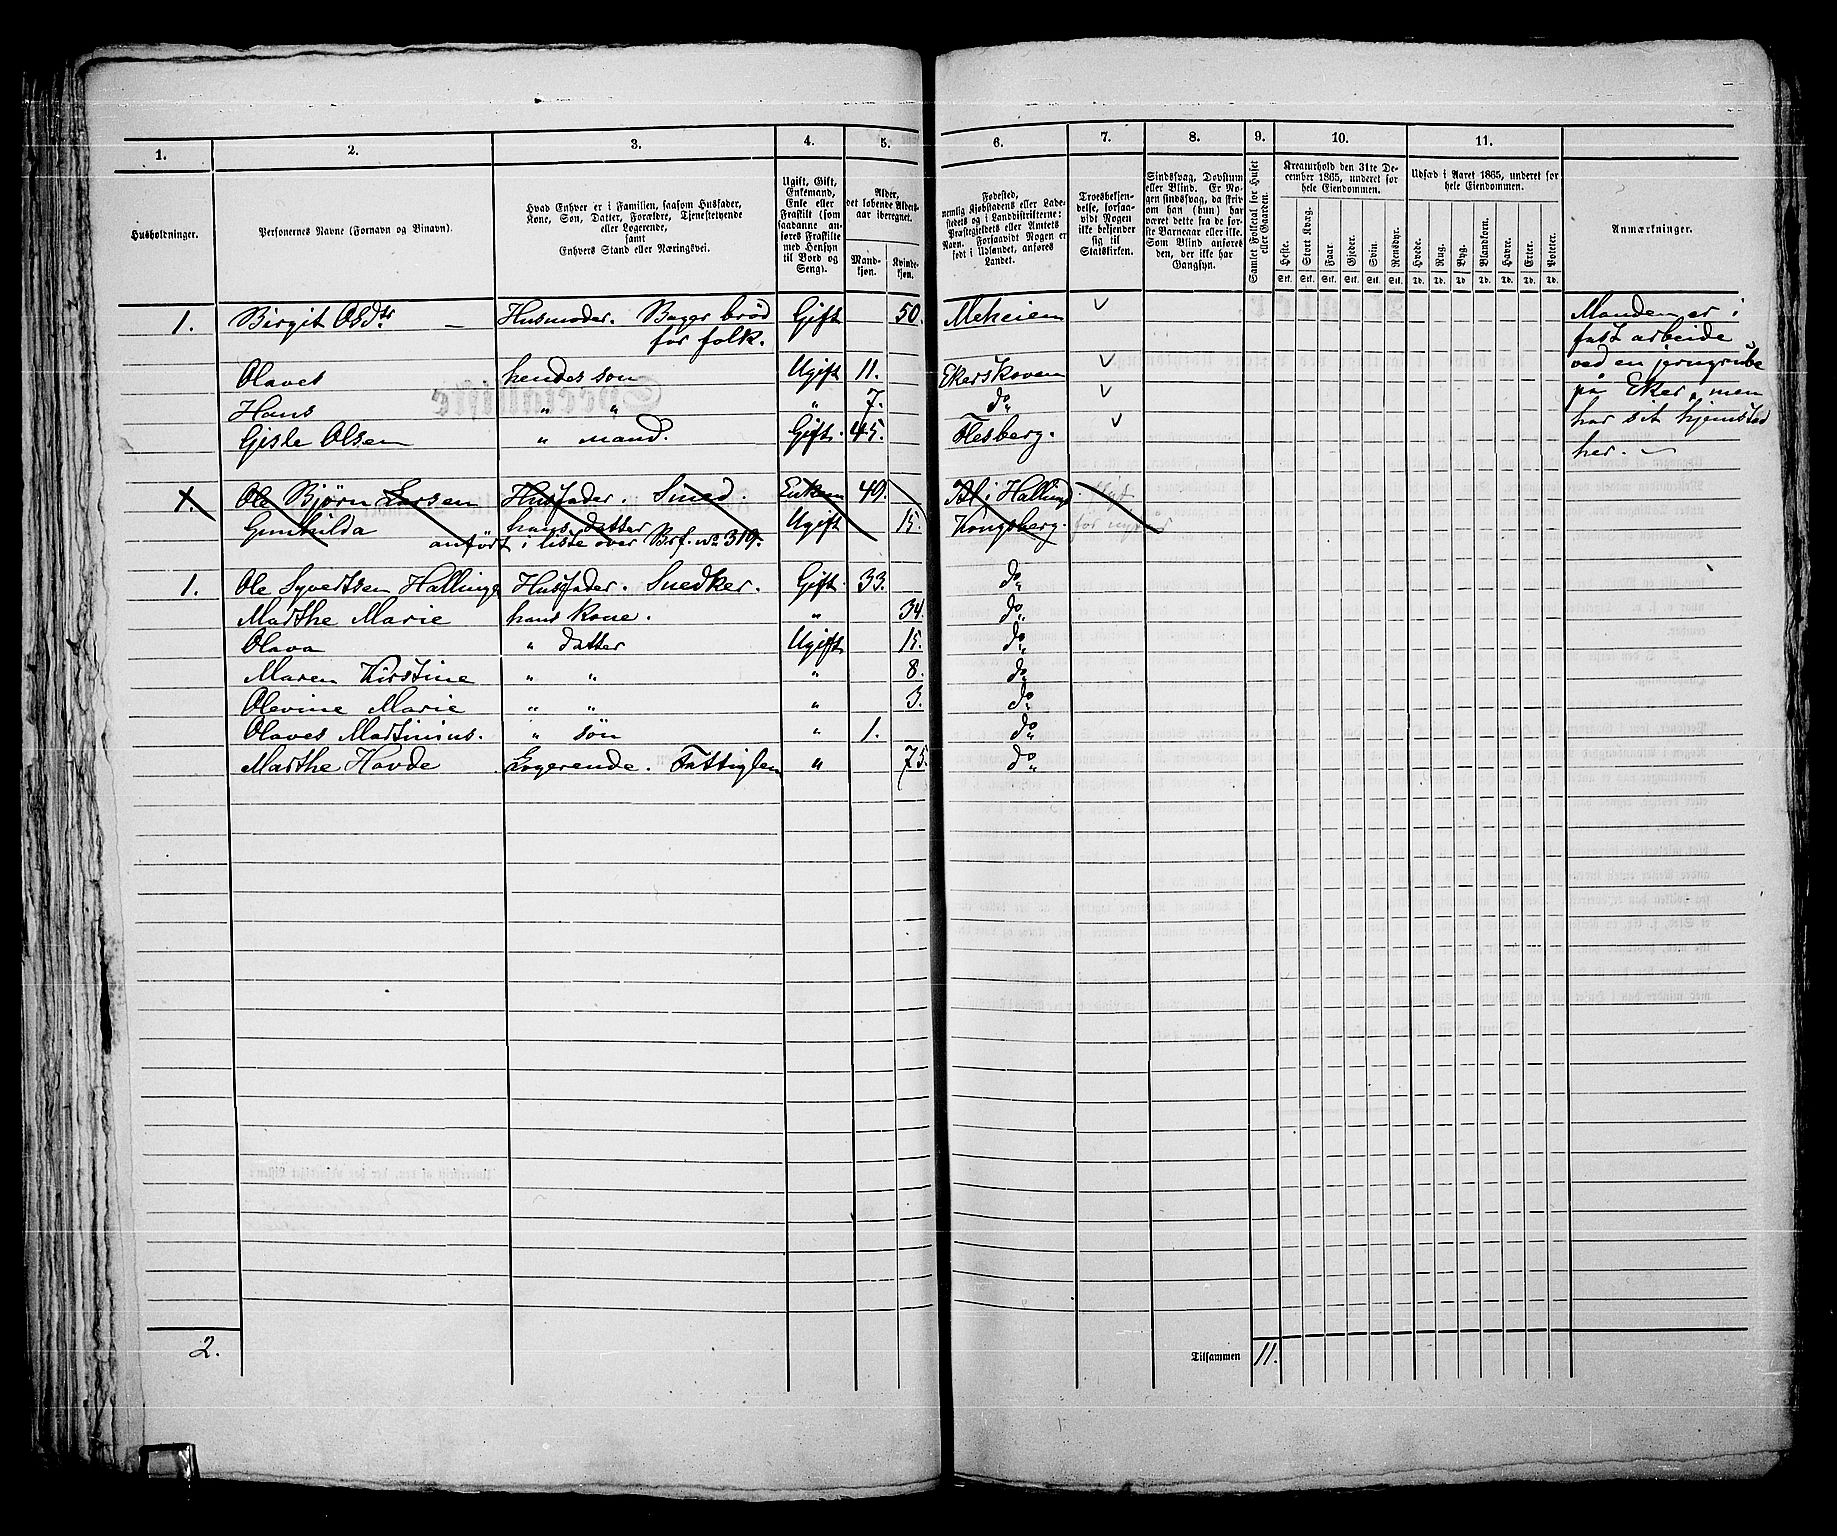 1. 2. 3. 4. 5. 6. 7. 8. 9. 10. 11.
Husholdninger.
Personernes Navne (Fornavn og Binavn).
Hvad Enhver er i Familien, saasom Husfader,
Kone, Søn, Datter, Forældre, Tjenestetyende
eller Logerende,
samt
Enhvers Stand eller Næringsvei.
Ugift, Gift,
Enkemand,
Enke eller
Fraskilt (som
saadanne an-
føres Fraskilte
med Hensyn
til Bord og
Seng).
Alder,
det løbende Alders-
aar iberegnet.
Mand-
kjøn.
Kvinde-
kjøn.
Fødested,
nemlig Kjøbstadens eller Lade-
stedets og i Landdistrikterne:
Præstegjeldets eller Amtets
Navn. Forsaavidt Nogen er
født i Udlandet, anføres
Landet.
Troesbekjen-
delse, forsaa-
vidt Nogen
ikke bekjender
sig til
Statskirken.
Sindssvag, Døvstum
eller Blind. Er No-
gen sindssvag, da skriv-
som han (hun) har
været dette fra de før-
ste Barneaar eller ikke.
Som Blind anføres
den, der ikke har
Gangsyn.
Samlet Folketal for Huset
eller Gaarden.
Kreaturhold den 31te De-
cember 1865, underet for
hele Eiendommen.
Heste. Stort Kvæg. Faar. Gjeder. Svin. Rensdyr.
Stk. Stk. Stk. Stk. Stk. Stk.
Udsæd i Aaret 1865, underet for
hele Eiendommen.
Hvede. Rug. Byg. Blandkorn. Havre. Erter. Poteter.
Td. Td. Td. Td. Td. Td. Td.
Anmærkninger.
1. Birgit Olsdtr — Husmoder. Bager brød Gift 50. Meheien
for folk.
Olaves hendes søn Ugift 11. Ekerskoven
Hans " " " 7. do
Gisle Olsen " mand. Gift. 45. Flesberg.
Manden er i
fast arbeide
ved en jerngrube
på Eker, men
har sit hjemsted
her. —
1. Ole Bjørn Larsen Husfader. Smed. Enkem 49. Ål i Hallingd.
Gunhilda hans datter Ugift 15. Kongsberg.
anført i liste over Brf. no 319.
1. Ole Syvertsen Hallinge Husfader. Snedker. Gift. 33. do
Marthe Marie hans kone. " 34. do
Olava " datter Ugift 15. do
Maren Kirstine " " " 8. do
Olevine Marie " " " 3. do
Olaves Martinius. " søn " 1. do
Marthe Hovde Logerende. Fattiglem " 75. do
2. Tilsammen 11.